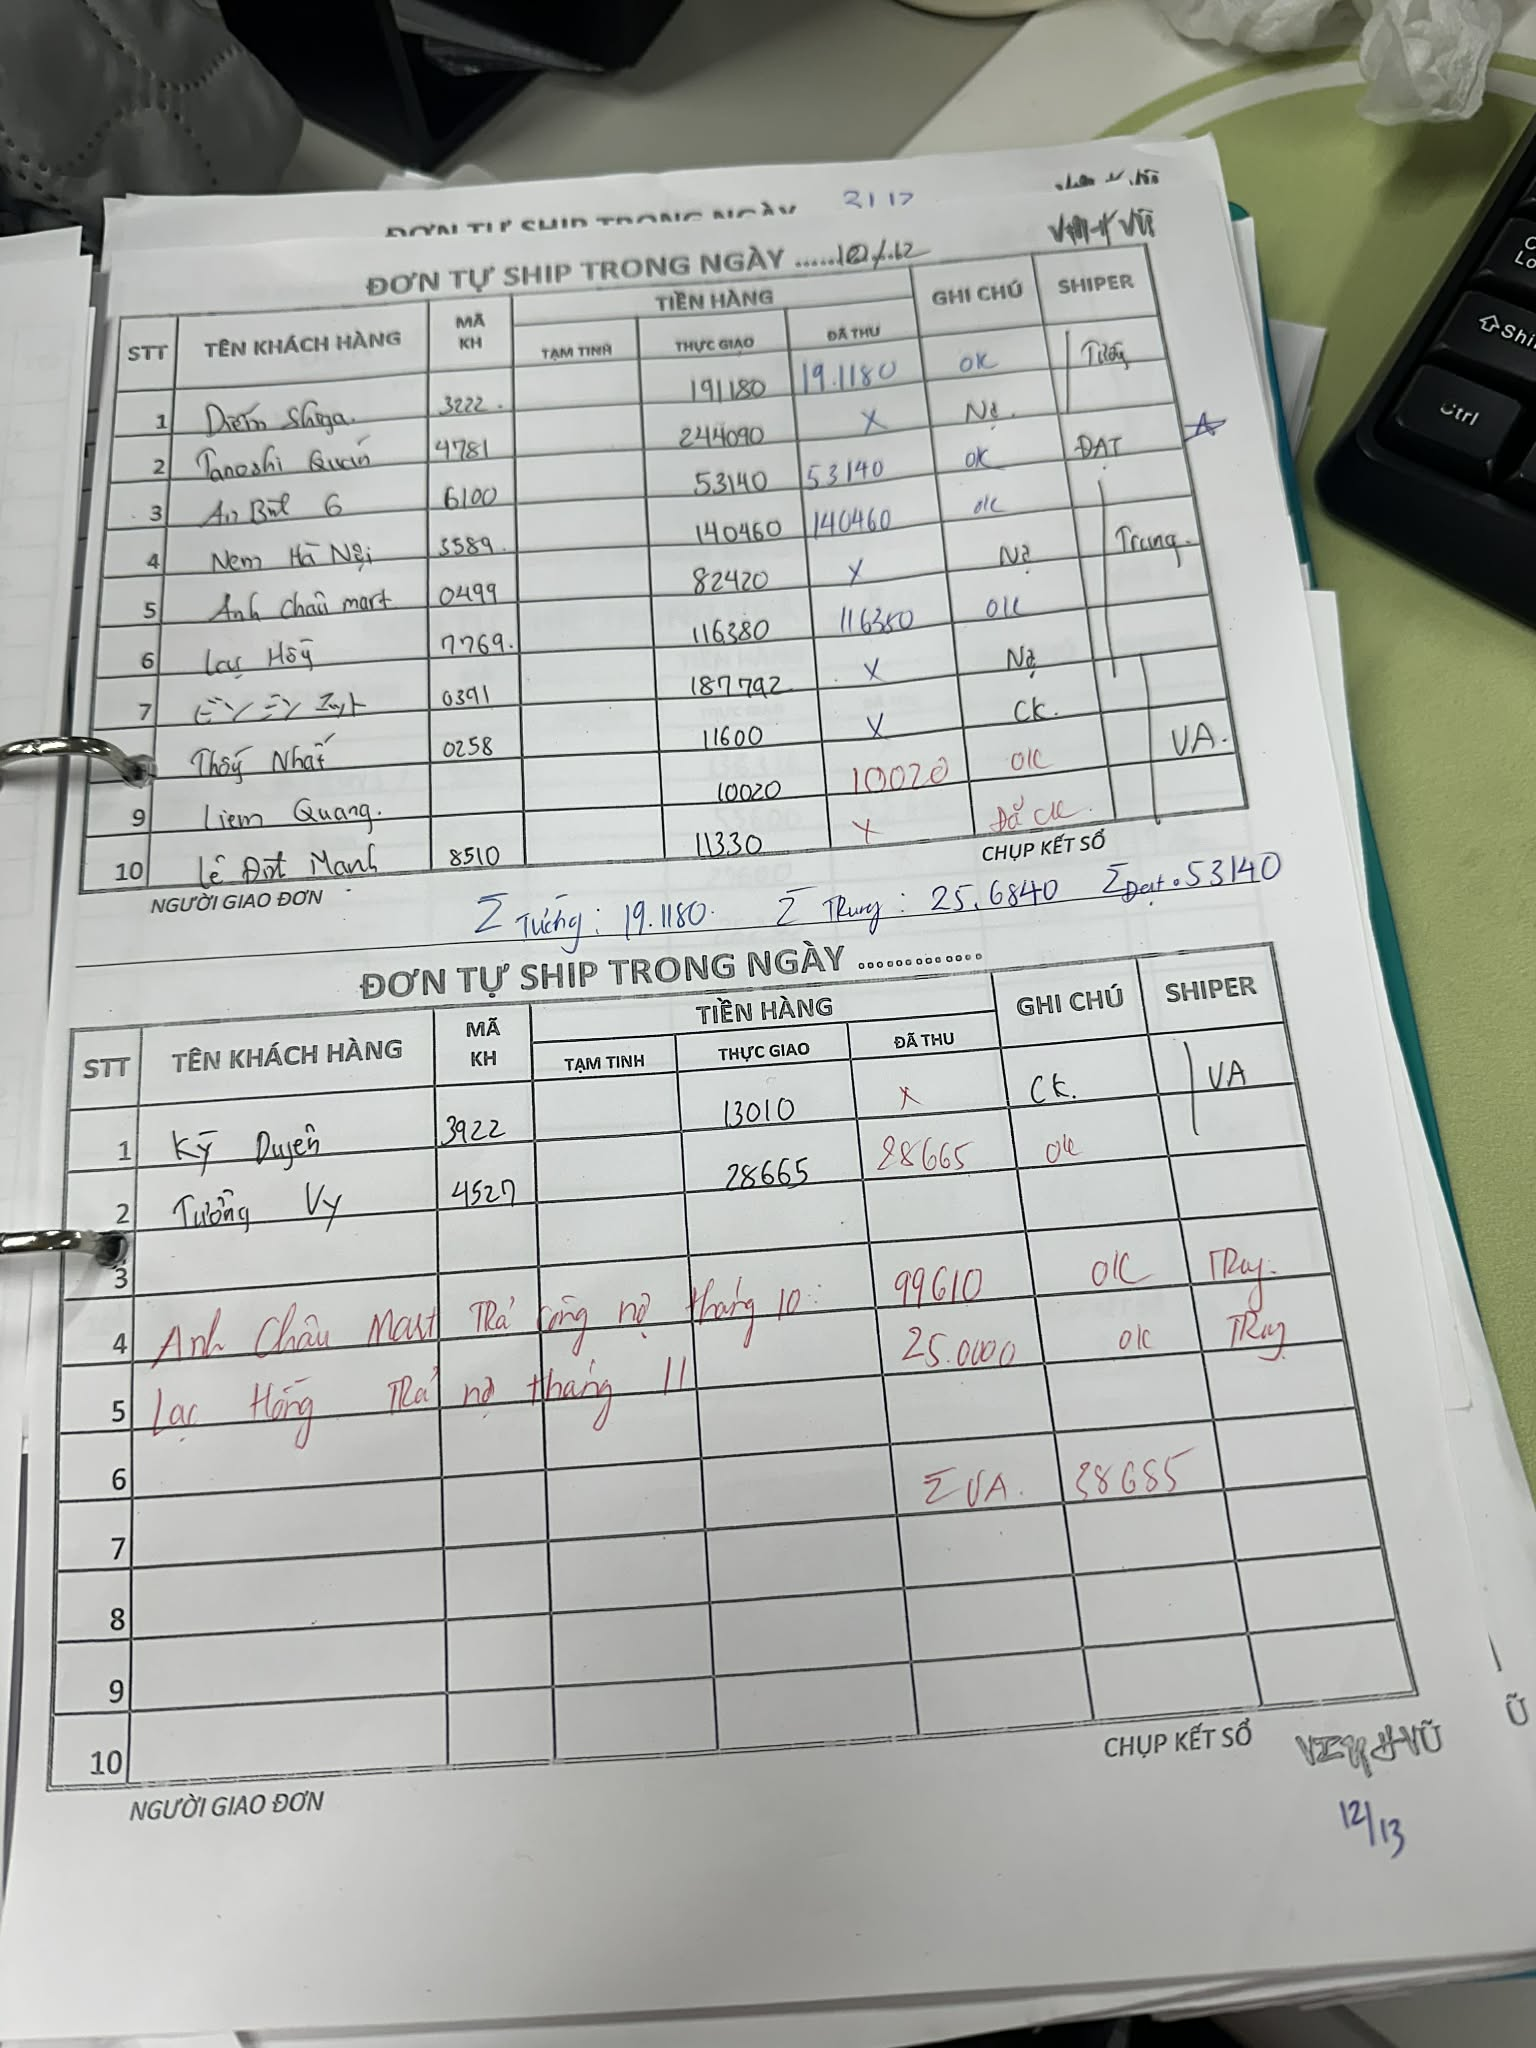 ĐƠN TỰ SHIP TRONG NGÀY
ĐƠN TỰ SHIP TRONG NGÀY ......10/12
STT TÊN KHÁCH HÀNG MÃ KH TIỀN HÀNG GHI CHÚ SHIPER
TẠM TINH THỰC GIAO ĐÃ THU
1 Diễm Shiga. 3222. 191180 19.1180 OK Tường
2 Tanoshi Quán 4781 244090 X Nợ.
3 An Bình 6 6100 53140 53140 OK ĐẠT
4 Nem Hà Nội 3589. 140460 140460 OK Trung.
5 Anh Châu mart 0499 82420 X Nợ
6 Lạc Hồng 7769. 116380 116380 OK
7 0391 187792 X Nợ
Thống Nhất 0258 11600 X CK.
9 Liêm Quang. 10020 10020 OK VA.
10 Lê Đạt Mạnh 8510 11330 X Đã CK.
NGƯỜI GIAO ĐƠN CHỤP KẾT SỔ
Σ Tường: 19.1180. Σ Trung: 25.6840 Σ Đạt: 53140
ĐƠN TỰ SHIP TRONG NGÀY .............
STT TÊN KHÁCH HÀNG MÃ KH TIỀN HÀNG GHI CHÚ SHIPER
TẠM TINH THỰC GIAO ĐÃ THU
1 Kỳ Duyên 3922 13010 X CK. VA
2 Tường Vy 4527 28665 28665 OK
3
4 Anh Châu Mart Trả công nợ tháng 10: 99610 OK
5 Lạc Hồng Trả nợ tháng 11 25.0000 OK
6 Σ VA. 38685
7
8
9
10
NGƯỜI GIAO ĐƠN CHỤP KẾT SỔ
12/13